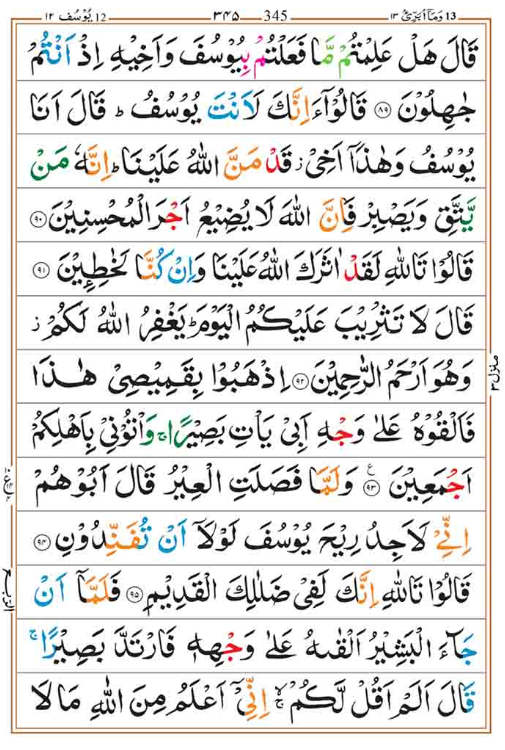 يُوْسُف ١٢ 12 ٣٤٥ 345 وَمَآ اُبَرِّئُ ١٣ 13
قَالَ هَلْ عَلِمْتُمْ مَّا فَعَلْتُمْ بِيُوْسُفَ وَاَخِيْهِ اِذْ اَنْتُمْ
جٰهِلُوْنَ ۝۸۹ قَالُوْٓا ءَاِنَّكَ لَاَنْتَ يُوْسُفُ ؕ قَالَ اَنَا
يُوْسُفُ وَهٰذَاۤ اَخِيْ ؗ قَدْ مَنَّ اللّٰهُ عَلَيْنَا ؕ اِنَّهٗ مَنْ
يَّتَّقِ وَيَصْبِرْ فَاِنَّ اللّٰهَ لَا يُضِيْعُ اَجْرَ الْمُحْسِنِيْنَ ۝۹۰
قَالُوْا تَاللّٰهِ لَقَدْ اٰثَرَكَ اللّٰهُ عَلَيْنَا وَاِنْ كُنَّا لَخٰطِـِٕيْنَ ۝۹۱
قَالَ لَا تَثْرِيْبَ عَلَيْكُمُ الْيَوْمَ ؕ يَغْفِرُ اللّٰهُ لَكُمْ ؗ
وَهُوَ اَرْحَمُ الرّٰحِمِيْنَ ۝۹۲ اِذْهَبُوْا بِقَمِيْصِيْ هٰذَا
فَاَلْقُوْهُ عَلٰى وَجْهِ اَبِيْ يَاْتِ بَصِيْرًا ۚ وَاْتُوْنِيْ بِاَهْلِكُمْ
اَجْمَعِيْنَ ۝۹۳ ع وَلَمَّا فَصَلَتِ الْعِيْرُ قَالَ اَبُوْهُمْ
اِنِّيْ لَاَجِدُ رِيْحَ يُوْسُفَ لَوْلَاۤ اَنْ تُفَنِّدُوْنِ ۝۹۴
قَالُوْا تَاللّٰهِ اِنَّكَ لَفِيْ ضَلٰلِكَ الْقَدِيْمِ ۝۹۵ فَلَمَّاۤ اَنْ
جَآءَ الْبَشِيْرُ اَلْقٰىهُ عَلٰى وَجْهِهٖ فَارْتَدَّ بَصِيْرًا ۚ
قَالَ اَلَمْ اَقُلْ لَّكُمْ ۚۙ اِنِّيْۤ اَعْلَمُ مِنَ اللّٰهِ مَا لَا
منزل ٣
الربع